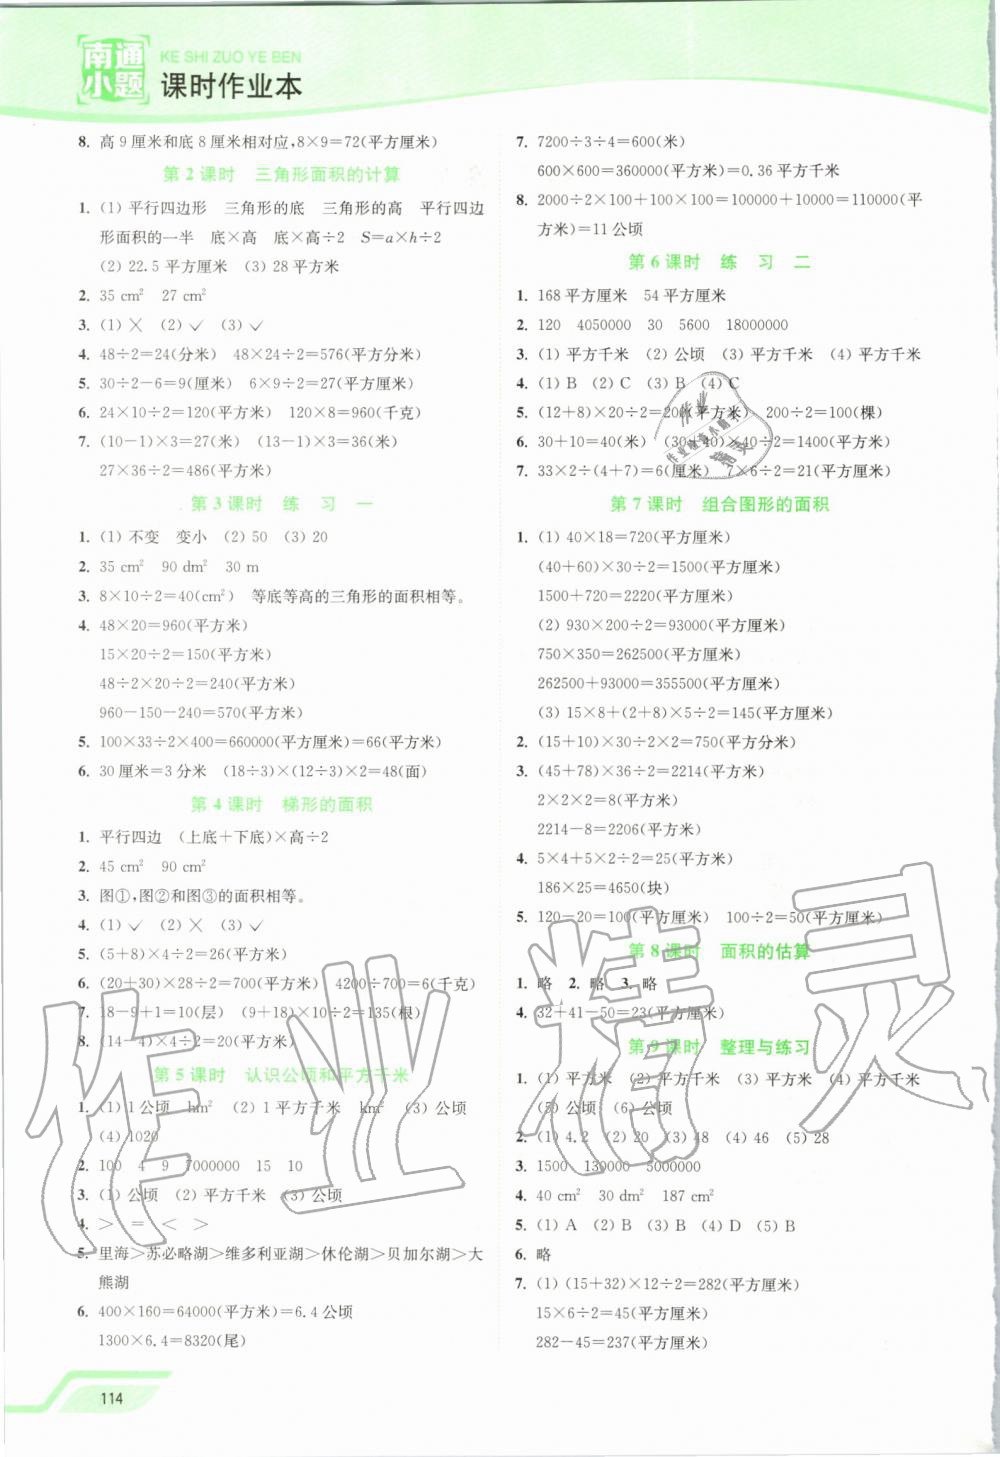 南通小题
KE SHI ZUO YE BEN
课时作业本
8. 高 9 厘米和底 8 厘米相对应,8×9=72(平方厘米)
第 2 课时 三角形面积的计算
1. (1) 平行四边形 三角形的底 三角形的高 平行四边
形面积的一半 底×高 底×高÷2 S=a×h÷2
(2) 22.5 平方厘米 (3) 28 平方米
2. 35 cm² 27 cm²
3. (1) ✕ (2) ✓ (3) ✓
4. 48÷2=24(分米) 48×24÷2=576(平方分米)
5. 30÷2-6=9(厘米) 6×9÷2=27(平方厘米)
6. 24×10÷2=120(平方米) 120×8=960(千克)
7. (10-1)×3=27(米) (13-1)×3=36(米)
27×36÷2=486(平方米)
第 3 课时 练 习 一
1. (1) 不变 变小 (2) 50 (3) 20
2. 35 cm² 90 dm² 30 m
3. 8×10÷2=40(cm²) 等底等高的三角形的面积相等。
4. 48×20=960(平方米)
15×20÷2=150(平方米)
48÷2×20÷2=240(平方米)
960-150-240=570(平方米)
5. 100×33÷2×400=660000(平方厘米)=66(平方米)
6. 30 厘米=3 分米 (18÷3)×(12÷3)×2=48(面)
第 4 课时 梯形的面积
1. 平行四边 (上底+下底)×高÷2
2. 45 cm² 90 cm²
3. 图①,图②和图③的面积相等。
4. (1) ✓ (2) ✕ (3) ✓
5. (5+8)×4÷2=26(平方米)
6. (20+30)×28÷2=700(平方米) 4200÷700=6(千克)
7. 18-9+1=10(层) (9+18)×10÷2=135(根)
8. (14-4)×4÷2=20(平方米)
第 5 课时 认识公顷和平方千米
1. (1) 1 公顷 hm² (2) 1 平方千米 km² (3) 公顷
(4) 1020
2. 100 4 9 7000000 15 10
3. (1) 公顷 (2) 平方千米 (3) 公顷
4. > = < >
5. 里海>苏必略湖>维多利亚湖>休伦湖>贝加尔湖>大
熊湖
6. 400×160=64000(平方米)=6.4 公顷
1300×6.4=8320(尾)
114
7. 7200÷3÷4=600(米)
600×600=360000(平方米)=0.36 平方千米
8. 2000÷2×100+100×100=100000+10000=110000(平
方米)=11 公顷
第 6 课时 练 习 二
1. 168 平方厘米 54 平方厘米
2. 120 4050000 30 5600 18000000
3. (1) 平方千米 (2) 公顷 (3) 平方千米 (4) 平方千米
4. (1) B (2) C (3) B (4) C
5. (12+8)×20÷2=200(平方米) 200÷2=100(棵)
6. 30+10=40(米) (30+40)×40÷2=1400(平方米)
7. 33×2÷(4+7)=6(厘米) 7×6÷2=21(平方厘米)
第 7 课时 组合图形的面积
1. (1) 40×18=720(平方厘米)
(40+60)×30÷2=1500(平方厘米)
1500+720=2220(平方厘米)
(2) 930×200÷2=93000(平方厘米)
750×350=262500(平方厘米)
262500+93000=355500(平方厘米)
(3) 15×8+(2+8)×5÷2=145(平方厘米)
2. (15+10)×30÷2×2=750(平方分米)
3. (45+78)×36÷2=2214(平方米)
2×2×2=8(平方米)
2214-8=2206(平方米)
4. 5×4+5×2÷2=25(平方米)
186×25=4650(块)
5. 120-20=100(平方厘米) 100÷2=50(平方厘米)
第 8 课时 面积的估算
1. 略 2. 略 3. 略
4. 32+41-50=23(平方厘米)
第 9 课时 整理与练习
1. (1) 平方米 (2) 平方千米 (3) 平方米 (4) 平方千米
(5) 公顷 (6) 公顷
2. (1) 4.2 (2) 20 (3) 48 (4) 46 (5) 28
3. 1500 130000 5000000
4. 40 cm² 30 dm² 187 cm²
5. (1) A (2) B (3) B (4) D (5) B
6. 略
7. (1) (15+32)×12÷2=282(平方厘米)
15×6÷2=45(平方厘米)
282-45=237(平方厘米)
作业精灵